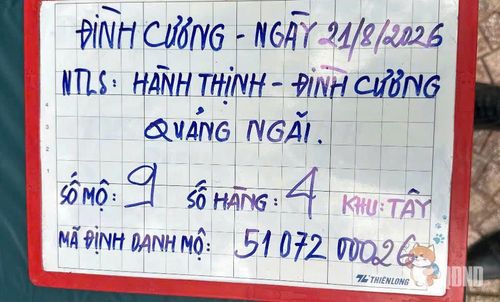 ĐÌNH CƯƠNG - NGÀY 21/8/2026
NTLS: HÀNH THỊNH - ĐÌNH CƯƠNG
QUẢNG NGÃI.
SỐ MỘ: 9 SỐ HÀNG: 4 KHU: TÂY
MÃ ĐỊNH DANH MỘ: 51 072 00026
THIÊN LONG